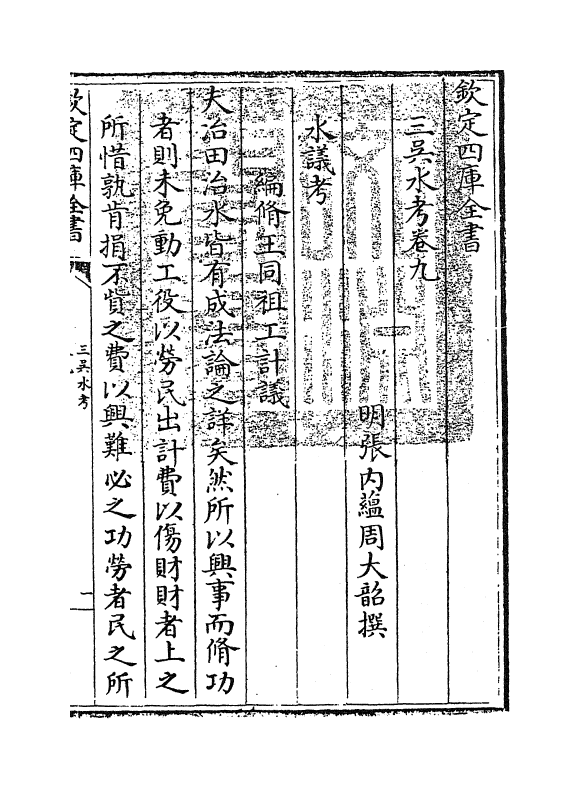 欽定四庫全書
三吳水考卷九
明張內蘊周大韶撰
水議考
編脩王同祖工計議
夫治田治水皆有成法論之詳矣然所以興事而脩功
者則未免動工役以勞民出計費以傷財財者上之
所惜孰肯捐不貲之費以興難必之功勞者民之所
欽定四庫全書
三吳水考
一